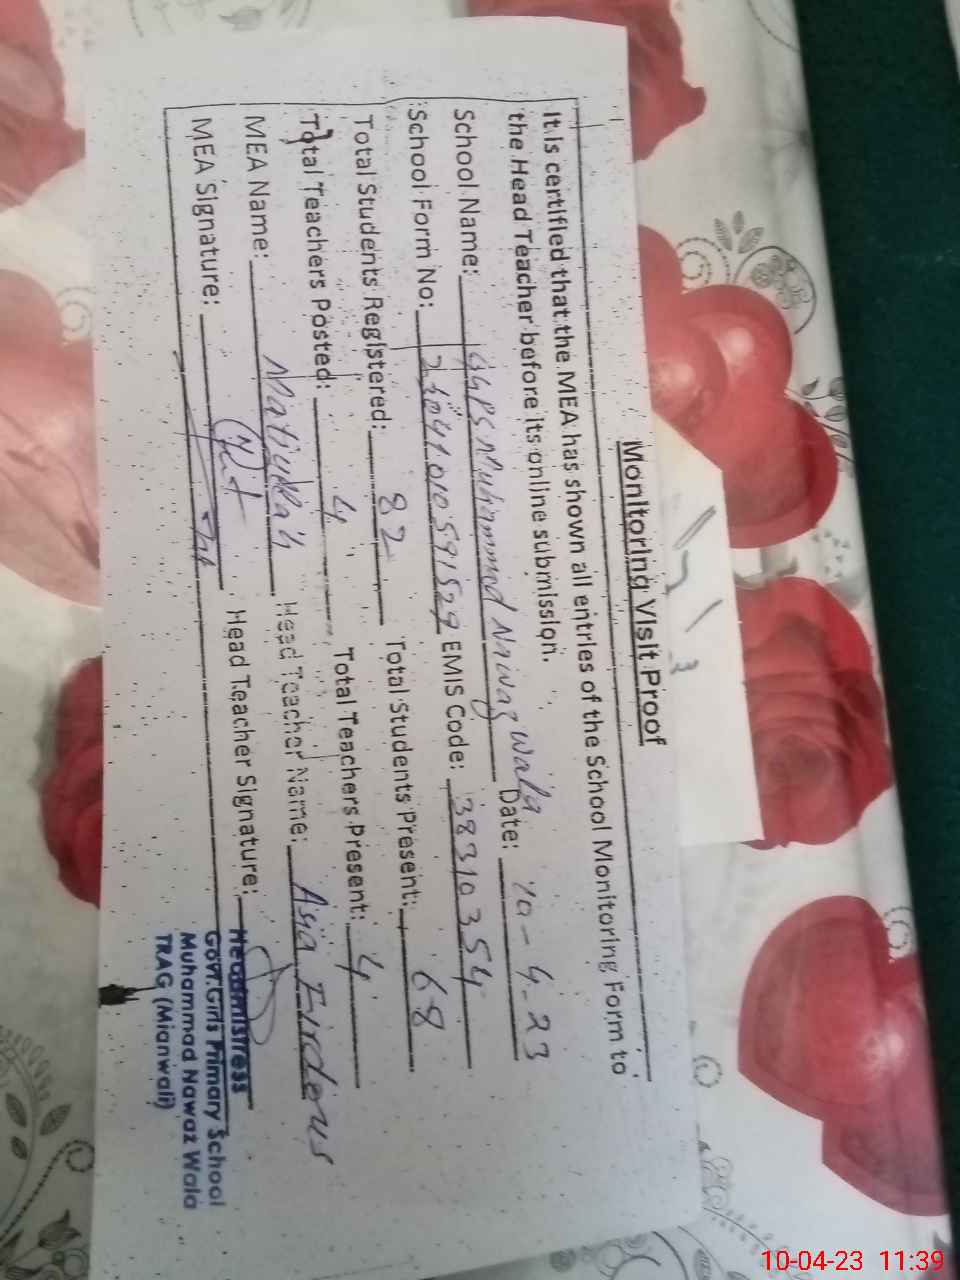 Monitoring Visit Proof
It is certified that the MEA has shown all entries of the School Monitoring Form to
the Head Teacher before its online submission.
School Name: GGPS Muhammad Nawaz Wala Date: 10-4-23
School Form No: EMIS Code: 38310354
Total Students Registered: 82 Total Students Present: 68
Total Teachers Posted: 4 Total Teachers Present: 4
MEA Name: Matiullah Head Teacher Name: Asia Firdous
MEA Signature: Head Teacher Signature:
Headmistress
Govt.Girls Primary School
Muhammad Nawaz Wala
TRAG (Mianwali)
10-04-23 11:39